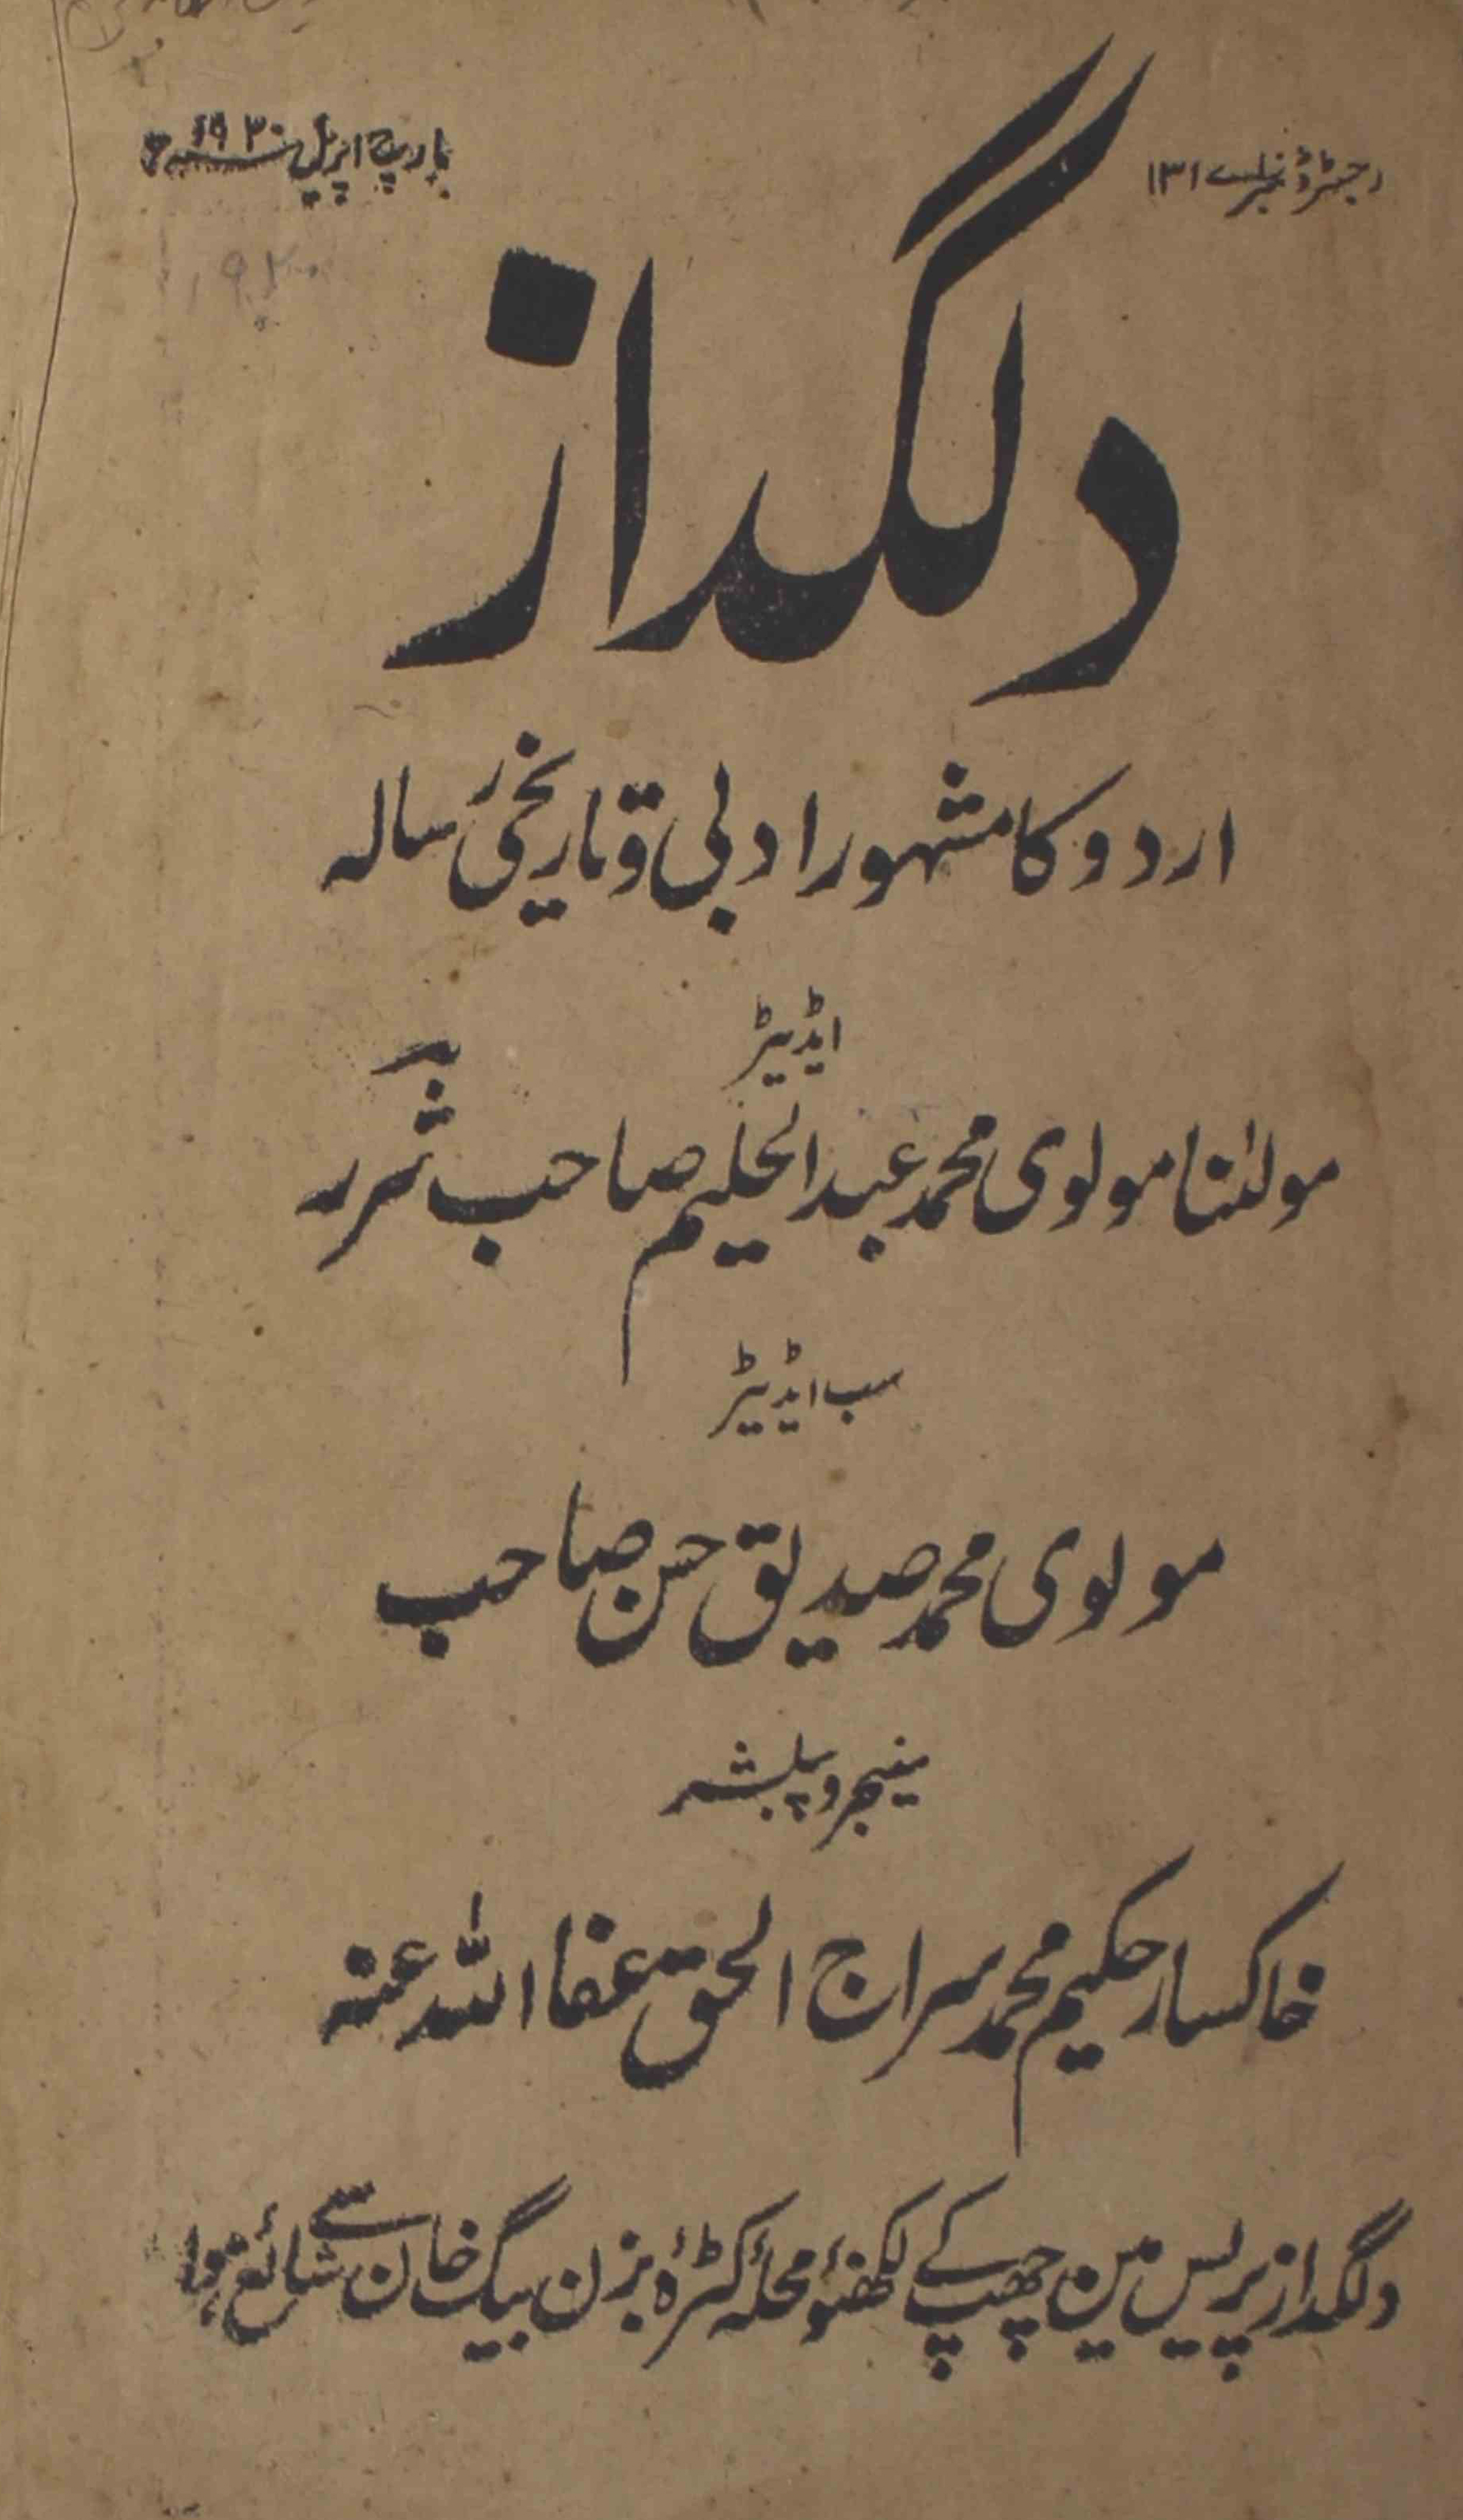 رجسٹرڈ نمبر ۱۳۱
مارچ اپریل ۱۹۲۰ء
۱۹۲۰
دلگداز
اردو کا مشہور ادبی و تاریخی رسالہ
ایڈیٹر
مولٰنا مولوی محمد عبدالحلیم صاحب شرر
سب ایڈیٹر
مولوی محمد صدیق حسن صاحب
مینیجر و پبلشر
خاکسار حکیم محمد سراج الحق عفا اللہ عنہ
دلگداز پریس مین چھپ کے لکھنؤ محلۂ کٹرۂ بزن بیگ خان سے شائع ہوا